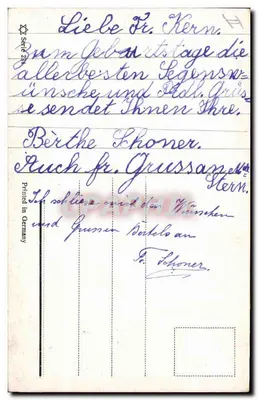 Liebe Fr. Kern.
Zum Geburtstage die
allerbesten Segensw-
ünsche und Hdl. Grüs-
se sendet Ihnen Ihre.
Berthe Schoner.
Auch fr. Gruss an
Stern.
Ich schliese mich den Wünschen
und Grussen an
Fr. Schoner.
Serie 214
Printed in Germany
VI